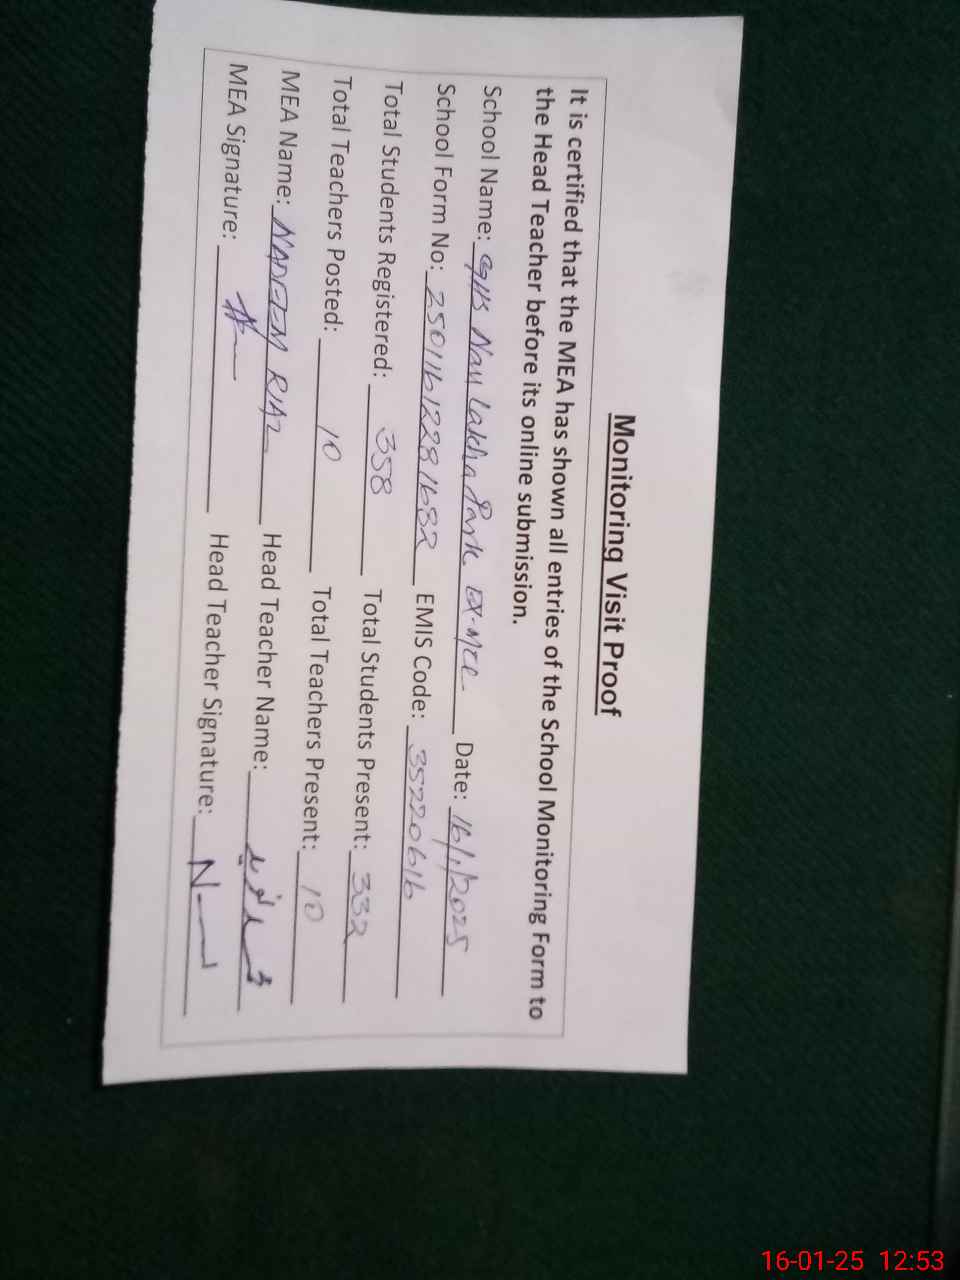 Monitoring Visit Proof
It is certified that the MEA has shown all entries of the School Monitoring Form to
the Head Teacher before its online submission.
School Name: GGHS Naulakha Park EX-MCL Date: 16/1/2025
School Form No: 25011612281682 EMIS Code: 35220616
Total Students Registered: 358 Total Students Present: 332
Total Teachers Posted: 10 Total Teachers Present: 10
MEA Name: NADEEM RIAZ Head Teacher Name:
MEA Signature: Head Teacher Signature:
16-01-25 12:53